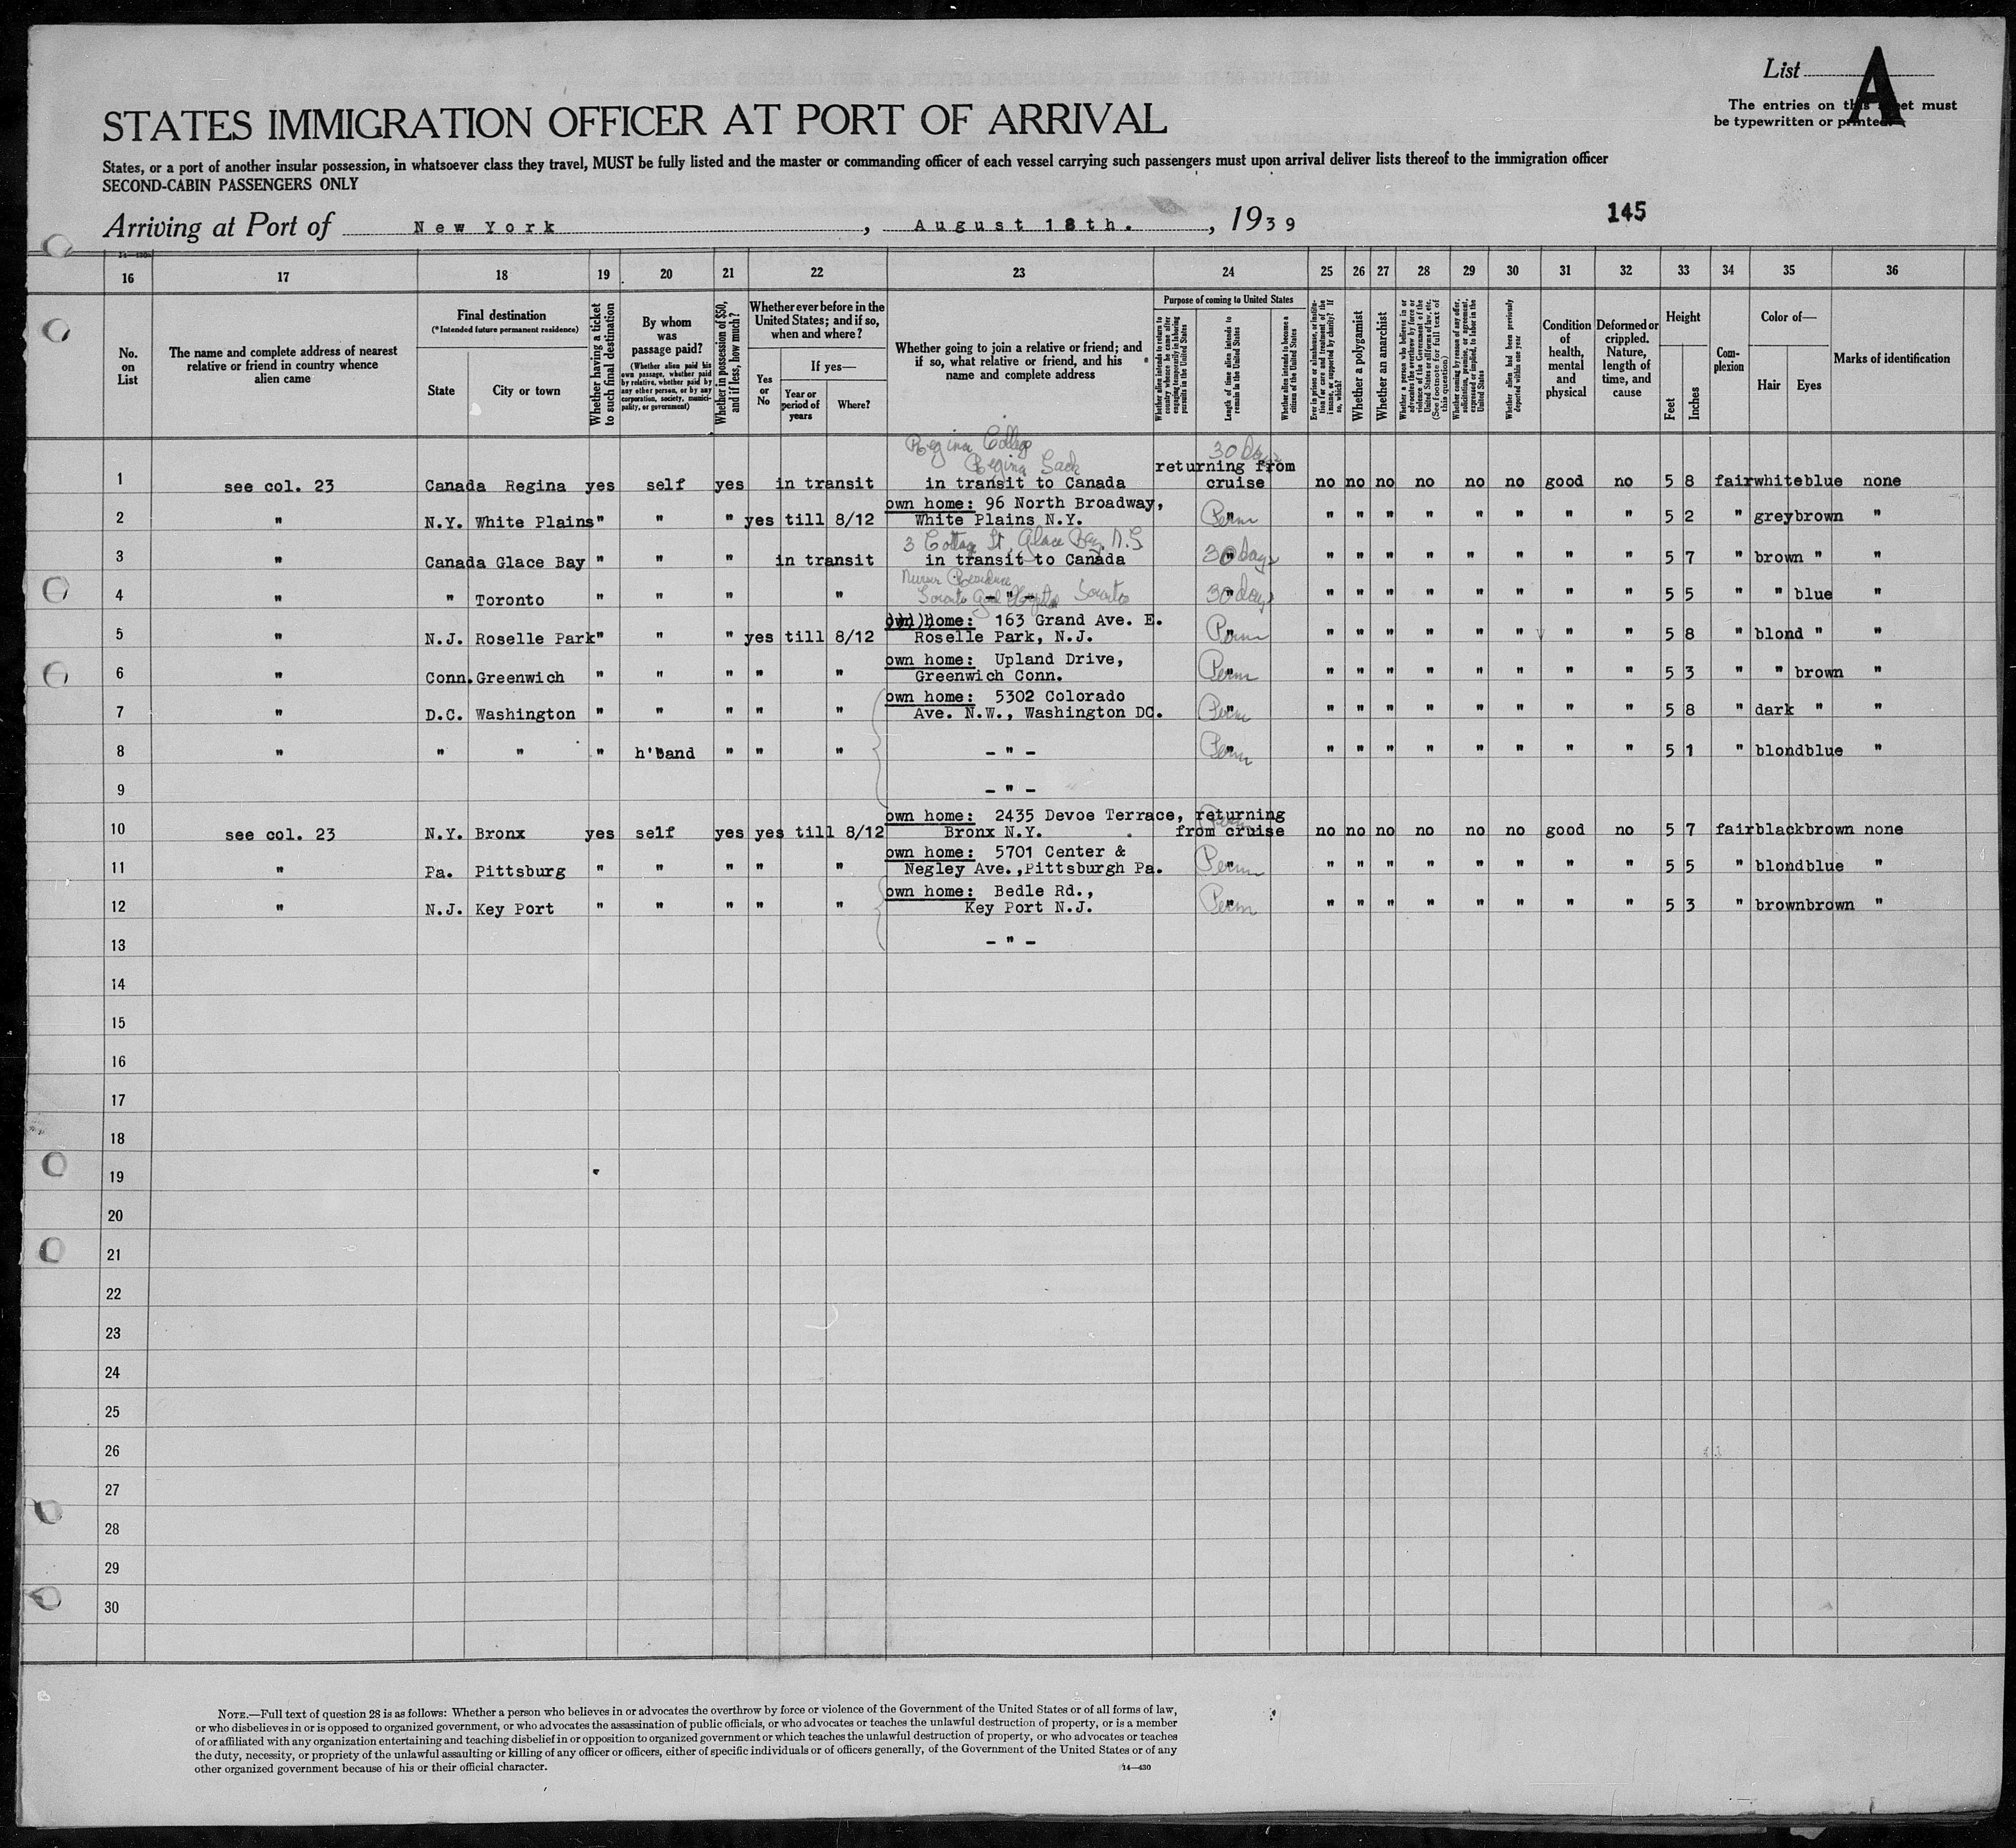 List A
The entries on this sheet must
be typewritten or printed.
STATES IMMIGRATION OFFICER AT PORT OF ARRIVAL
States, or a port of another insular possession, in whatsoever class they travel, MUST be fully listed and the master or commanding officer of each vessel carrying such passengers must upon arrival deliver lists thereof to the immigration officer
SECOND-CABIN PASSENGERS ONLY
Arriving at Port of New York, August 18th., 1939
145
16 17 18 19 20 21 22 23 24 25 26 27 28 29 30 31 32 33 34 35 36
No. on List
The name and complete address of nearest relative or friend in country whence alien came
Final destination
(*Intended future permanent residence)
State
City or town
Whether having a ticket to such final destination
By whom was passage paid?
(Whether alien paid his own passage, whether paid by relative, whether paid by any other person, or by any corporation, society, municipality, or government)
Whether in possession of $50, and if less, how much?
Whether ever before in the United States; and if so, when and where?
Yes or No
If yes—
Year or period of years
Where?
Whether going to join a relative or friend; and if so, what relative or friend, and his name and complete address
Purpose of coming to United States
Whether alien intends to return to country whence he came after engaging temporarily in laboring pursuits in the United States
Length of time alien intends to remain in the United States
Whether alien intends to become a citizen of the United States
Ever in prison or almshouse, or institution for care and treatment of the insane, or supported by charity? If so, which?
Whether a polygamist
Whether an anarchist
Whether a person who believes in or advocates the overthrow by force or violence of the Government of the United States or all forms of law, etc. (See footnote for full text of this question)
Whether coming by reason of any offer, solicitation, promise, or agreement, expressed or implied, to labor in the United States
Whether alien had been previously deported within one year
Condition of health, mental and physical
Deformed or crippled. Nature, length of time, and cause
Height
Feet
Inches
Complexion
Color of—
Hair
Eyes
Marks of identification
Regina College
Regina Sack 30 Days
1 see col. 23 Canada Regina yes self yes in transit in transit to Canada returning from cruise no no no no no no good no 5 8 fair white blue none
2 " N.Y. White Plains " " " yes till 8/12 own home: 96 North Broadway, White Plains N.Y. Perm " " " " " " " " " 5 2 " grey brown "
3 Cottage St, Glace Bay, N.S
3 " Canada Glace Bay " " " in transit in transit to Canada 30 days " " " " " " " " " 5 7 " brown " "
Toronto Toronto
4 " " Toronto " " " " - " - 30 days " " " " " " " " " 5 5 " " blue "
5 " N.J. Roselle Park " " " yes till 8/12 own home: 163 Grand Ave. E. Roselle Park, N.J. Perm " " " " " " " " " 5 8 " blond " "
6 " Conn. Greenwich " " " " " own home: Upland Drive, Greenwich Conn. Perm " " " " " " " " " 5 3 " " brown "
7 " D.C. Washington " " " " " own home: 5302 Colorado Ave. N.W., Washington DC. Perm " " " " " " " " " 5 8 " dark " "
8 " " " " h'band " " " - " - Perm " " " " " " " " " 5 1 " blond blue "
9 - " -
10 see col. 23 N.Y. Bronx yes self yes yes till 8/12 own home: 2435 Devoe Terrace, Bronx N.Y. returning from cruise no no no no no no good no 5 7 fair black brown none
11 " Pa. Pittsburg " " " " " own home: 5701 Center & Negley Ave., Pittsburgh Pa. Perm " " " " " " " " " 5 5 " blond blue "
12 " N.J. Key Port " " " " " own home: Bedle Rd., Key Port N.J. Perm " " " " " " " " " 5 3 " brown brown "
13 - " -
14
15
16
17
18
19
20
21
22
23
24
25
26
27
28
29
30
NOTE.—Full text of question 28 is as follows: Whether a person who believes in or advocates the overthrow by force or violence of the Government of the United States or of all forms of law,
or who disbelieves in or is opposed to organized government, or who advocates the assassination of public officials, or who advocates or teaches the unlawful destruction of property, or is a member
of or affiliated with any organization entertaining and teaching disbelief in or opposition to organized government or which teaches the unlawful destruction of property, or who advocates or teaches
the duty, necessity, or propriety of the unlawful assaulting or killing of any officer or officers, either of specific individuals or of officers generally, of the Government of the United States or of any
other organized government because of his or their official character.
14—430